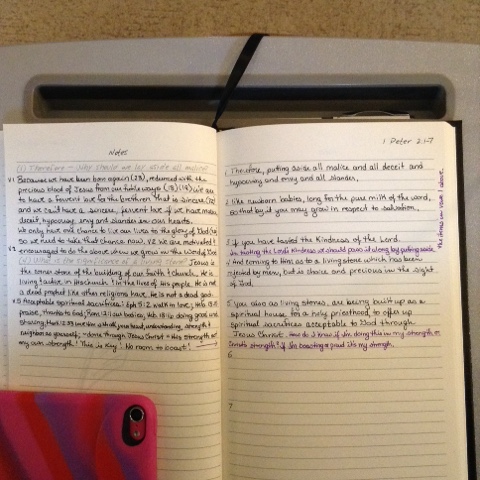 Notes
(1) Therefore - Why should we lay aside all malice
V1 Because we have been born again (23), redeemed with the
precious blood of Jesus from our futile ways (18)(19) We are
to have a fervent love for the brethren that is sincere (22)
and we could have a sincere, fervent love if we have malice,
deceit, hypocrisy, envy and slander in our hearts.
We only have one chance to live our lives to the glory of God (24)
so we need to take that chance now. V2 We are motivated &
encouraged to do the above when we grow in the Word of God
V3
Jesus is
the corner stone of the building of our faith & church. He is
living & alive in His church & in the lives of His people. He is not
a dead prophet like other religions have. He is not a dead god.
V5 Acceptable spiritual sacrifices: Eph 5:2 walk in love; Heb 13
praise, thanks to God; Rom 12:1 our bodies; Heb 13:16 doing good and
sharing
neighbor as yourself; - done through Jesus Christ = His strength not
my own strength! This is key! No room to boast!
1 Peter 2:1-7
1 Therefore, putting aside all malice and all deceit and
hypocrisy and envy and all slander,
2 like newborn babies, long for the pure milk of the word,
so that by it you may grow in respect to salvation,
3 if you have tasted the kindness of the Lord.
In tasting the Lord's kindness we should pass it along by putting aside
the items in verse 1 above.
4 And coming to Him as to a living stone which has been
rejected by men, but is choice and precious in the sight
of God,
5 You also as living stones, are being built up as a
spiritual house for a holy priesthood, to offer up
spiritual sacrifices acceptable to God through
Jesus Christ. How do I know if I'm doing this in my strength or
Christ's strength? If I'm boasting & proud it's my strength.
6
7